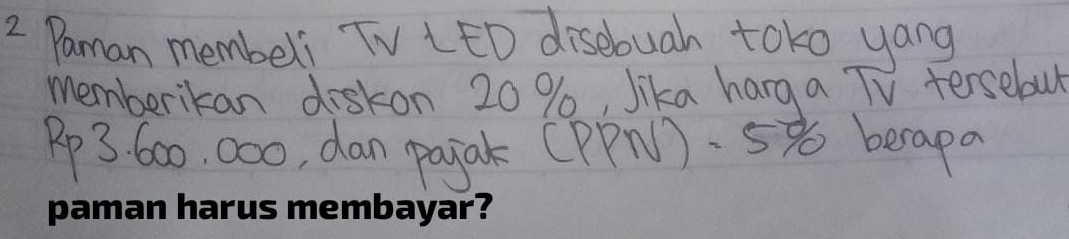 2 Paman membeli TV LED disebuah toko yang
memberikan diskon 20%, Jika harga TV tersebut
Rp 3.600.000, dan pajak (PPN) = 5% berapa
paman harus membayar?